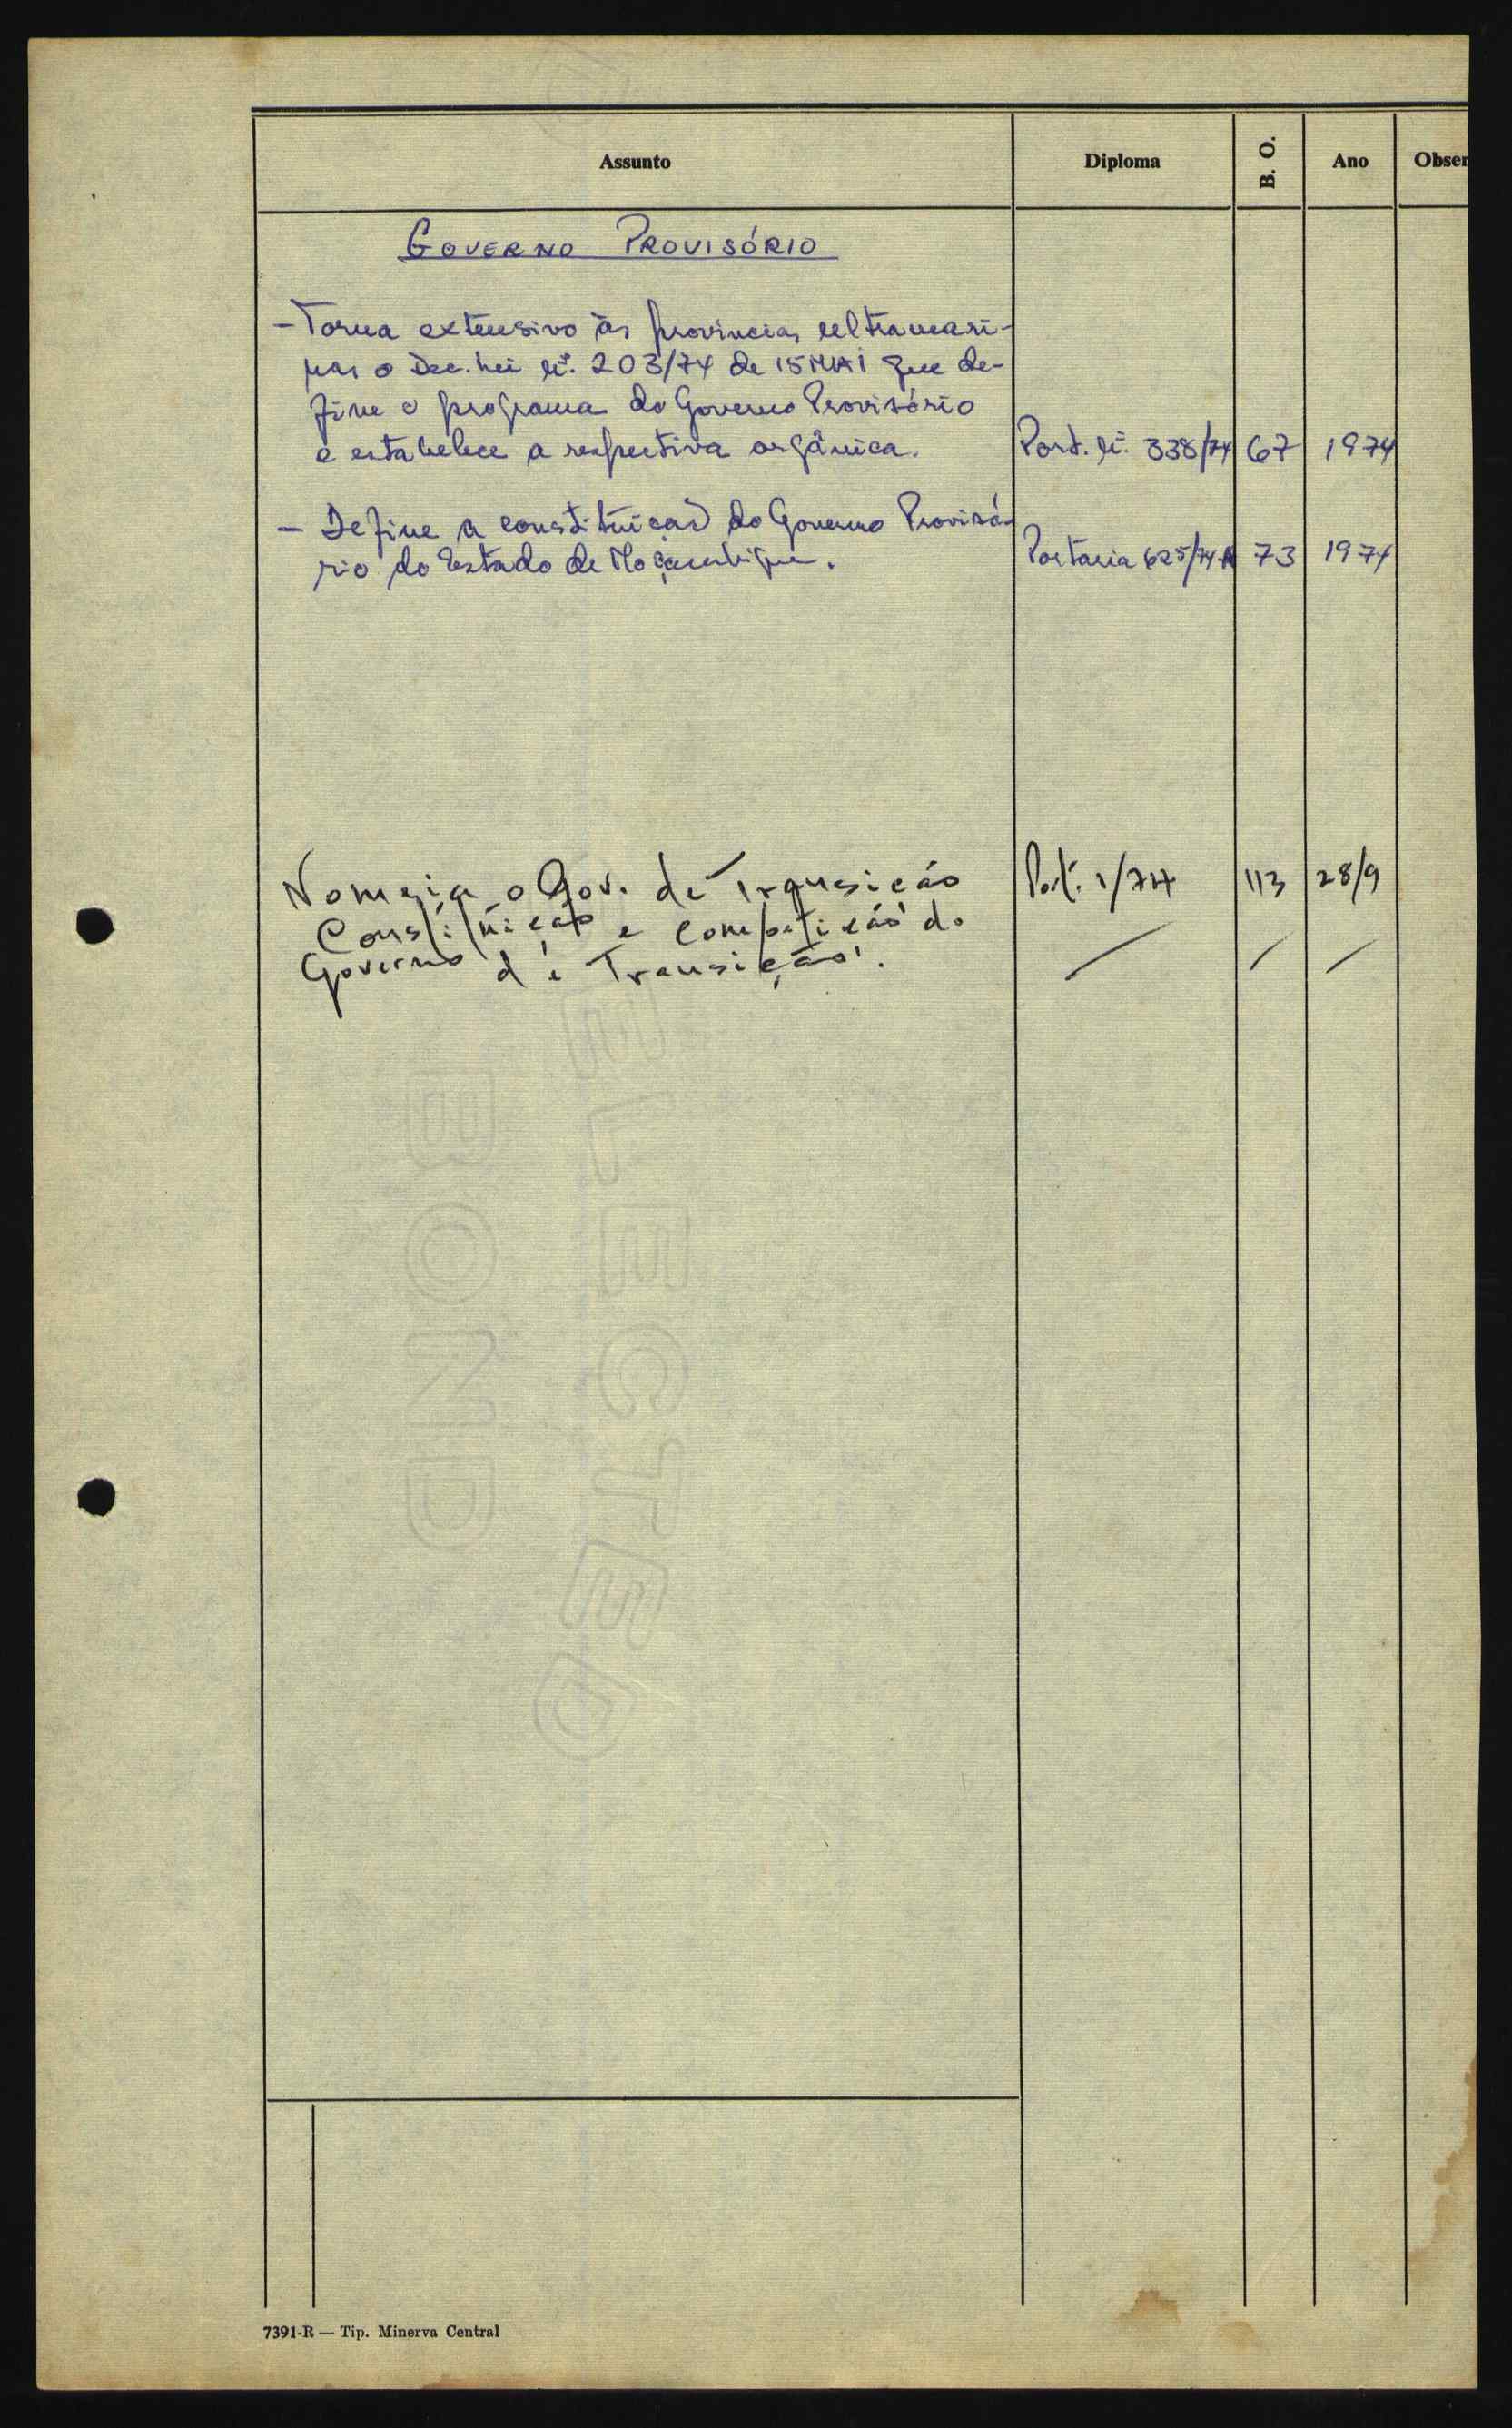 Assunto Diploma B. O. Ano Obser
GOVERNO PROVISÓRIO
- Torna extensivo às provincias ultramari-
nas o Dec. Lei nº. 203/74 de 15 MAI que de-
fine o programa do Governo Provisório
e estabelece a respectiva orgânica. Port. nº. 338/74 67 1974
- Define a constituição do Governo Provisó-
rio do Estado de Moçambique. Portaria 625/74-A 73 1974
Nomeia o Gov. de Transição Port. 1/74 113 28/9
Constituição e do
Governo de Transição.
BOND
SELECTED
7391-R — Tip. Minerva Central